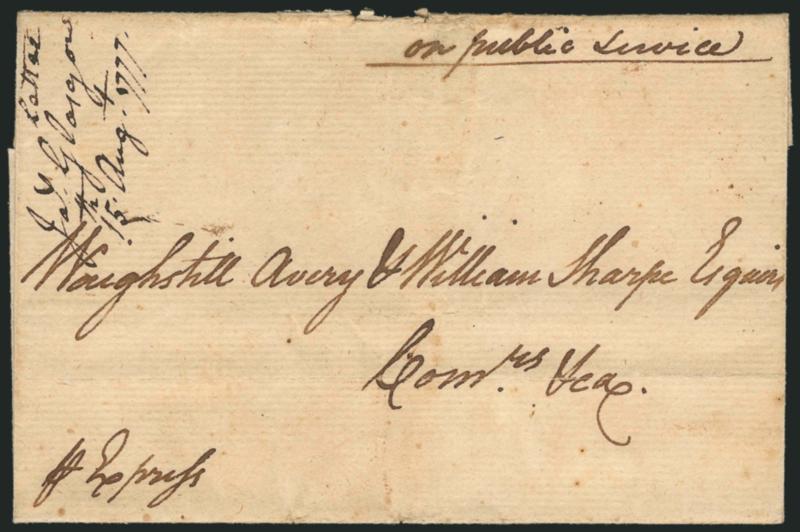 on public Service
Jas. Glasgow
15 Augt. 1777.
Waughstill Avery & William Sharpe Esquirs
Comrs. &ca.
⅌ Express